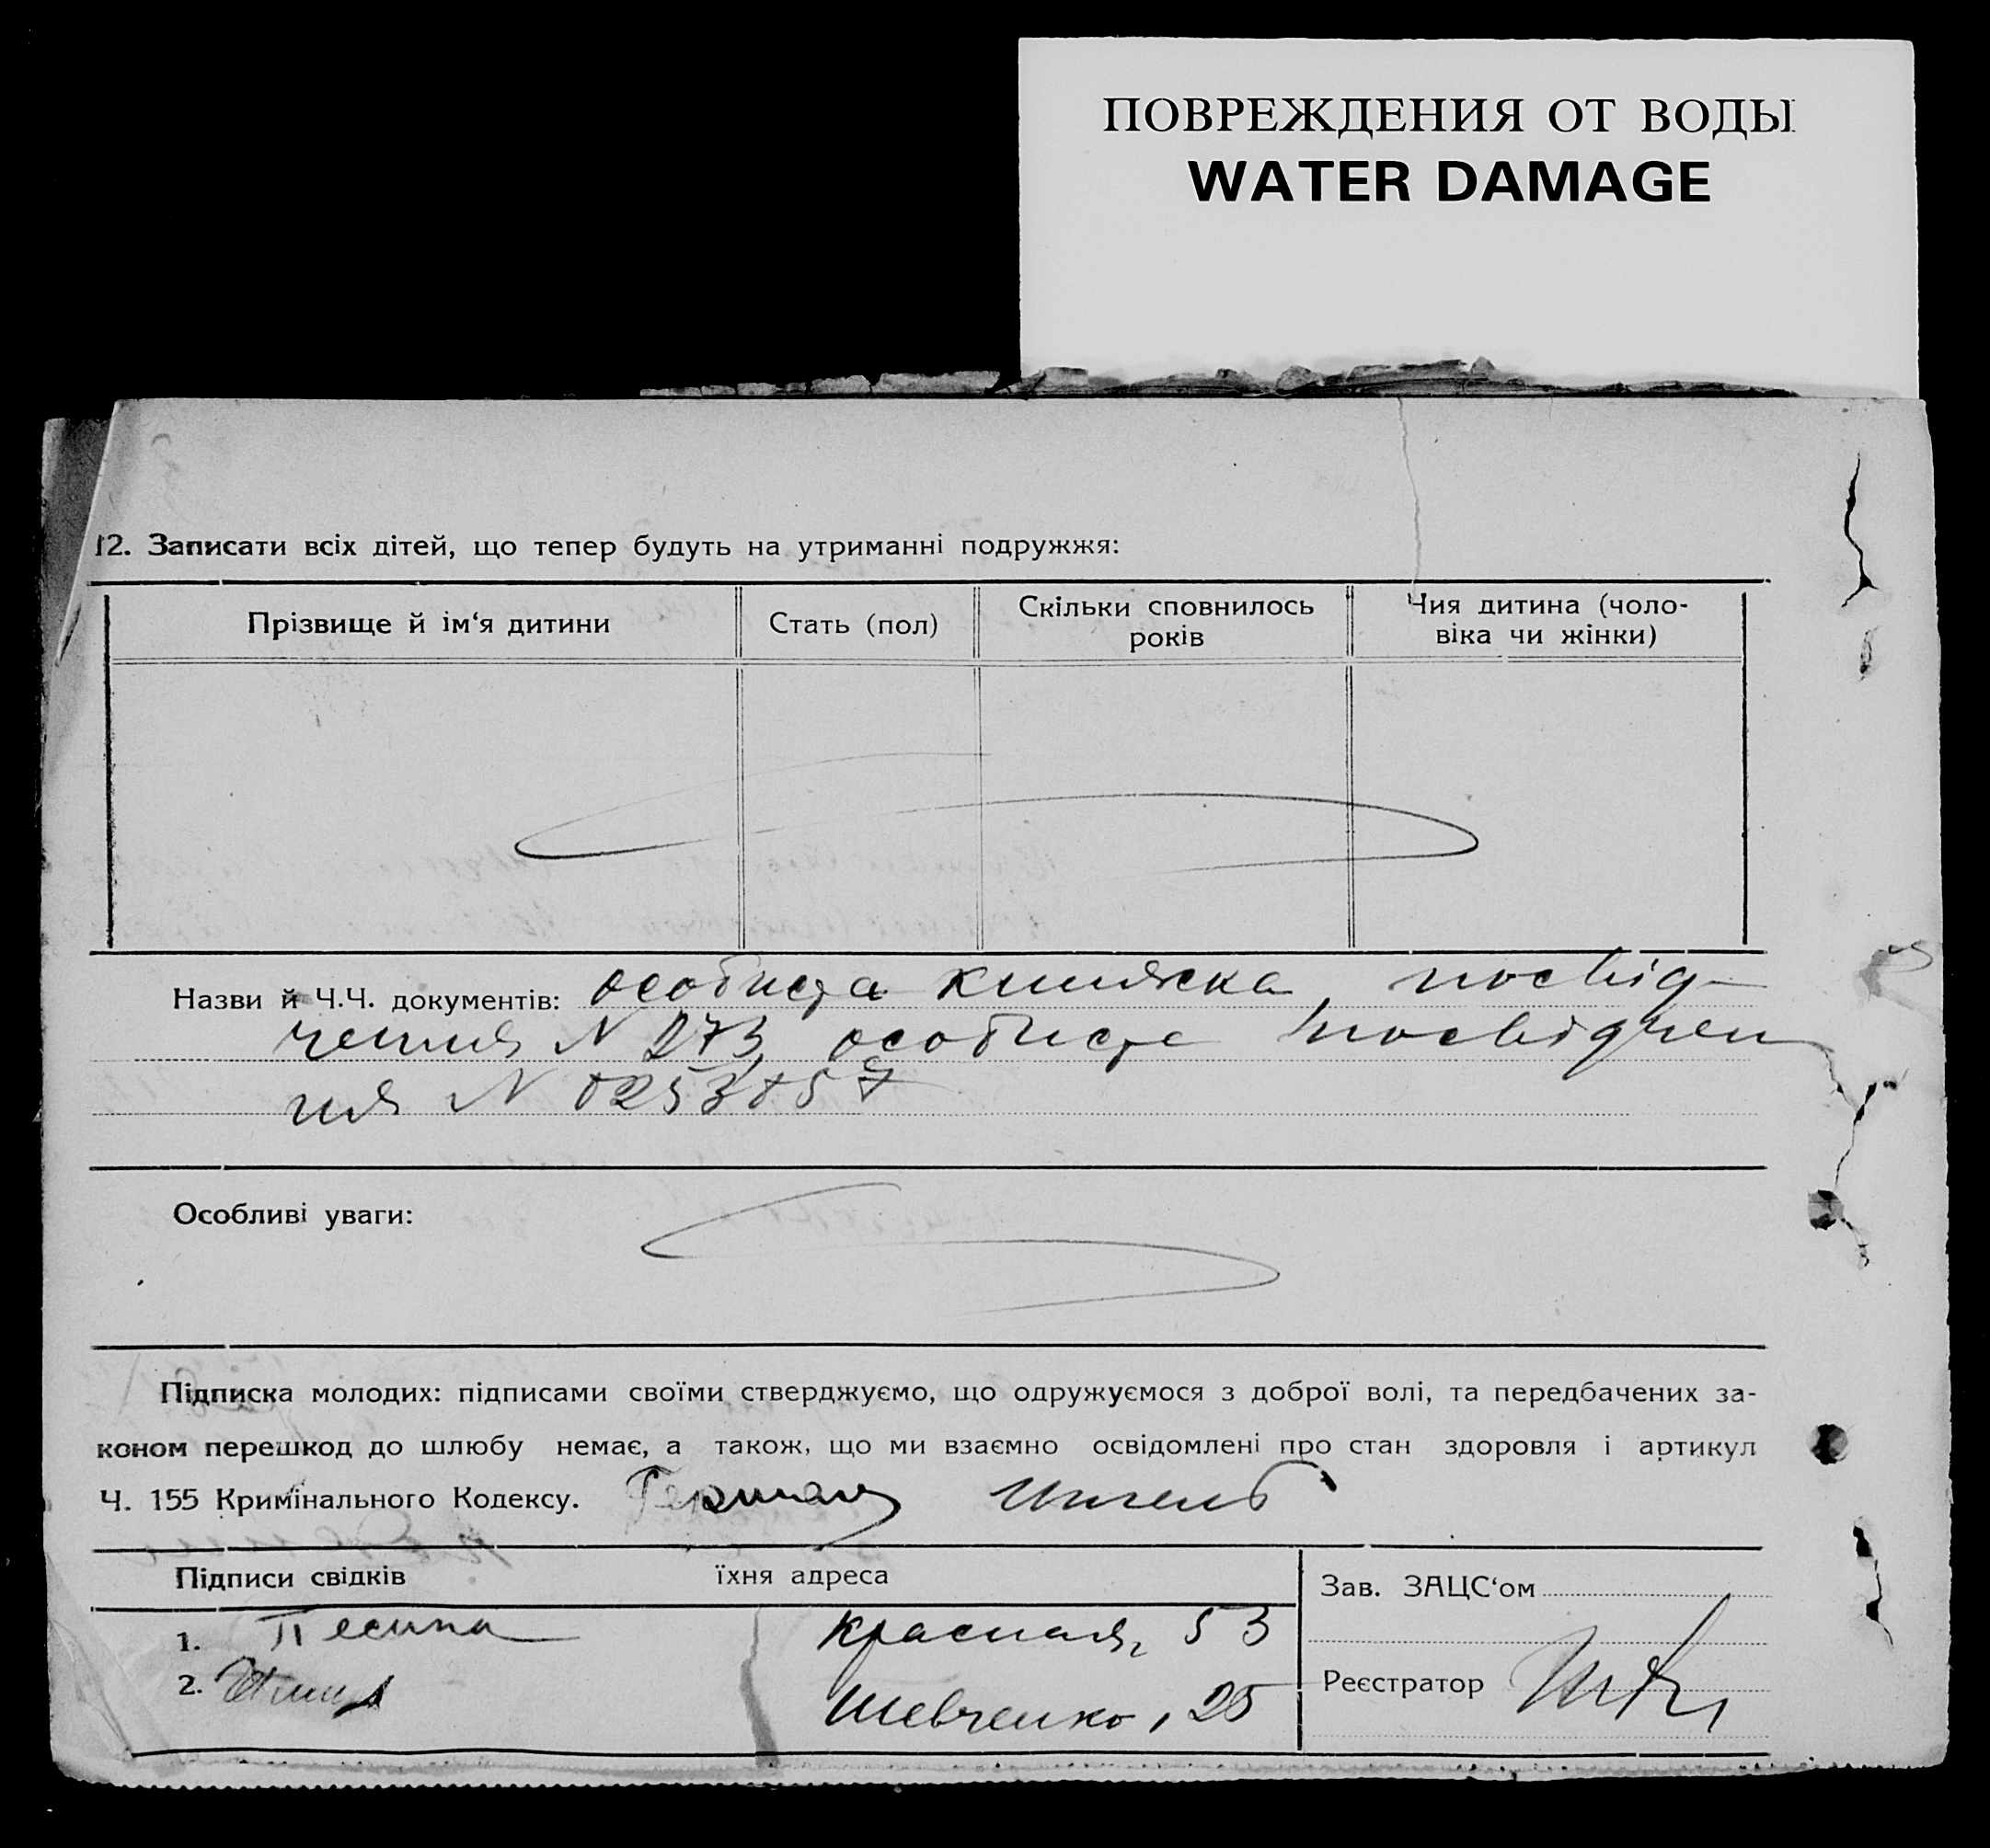 ПОВРЕЖДЕНИЯ ОТ ВОДЫ
WATER DAMAGE
12. Записати всіх дітей, що тепер будуть на утриманні подружжя:
Прізвище й ім‘я дитини
Стать (пол)
Скільки сповнилось
років
Чия дитина (чоло-
віка чи жінки)
Назви й Ч.Ч. документів: особиста книжска, посвід-
чення N 273, особисте посвідчен
ня N
Особливі уваги:
Підписка молодих: підписами своїми стверджуємо, що одружуємося з доброї волі, та передбачених за-
коном перешкод до шлюбу немає, а також, що ми взаємно освідомлені про стан здоровля і артикул
Ч. 155 Кримінального Кодексу.
Підписи свідків їхня адреса
1. Красная, 53
2. Шевченко, 25
Зав. ЗАЦС‘ом
Реєстратор